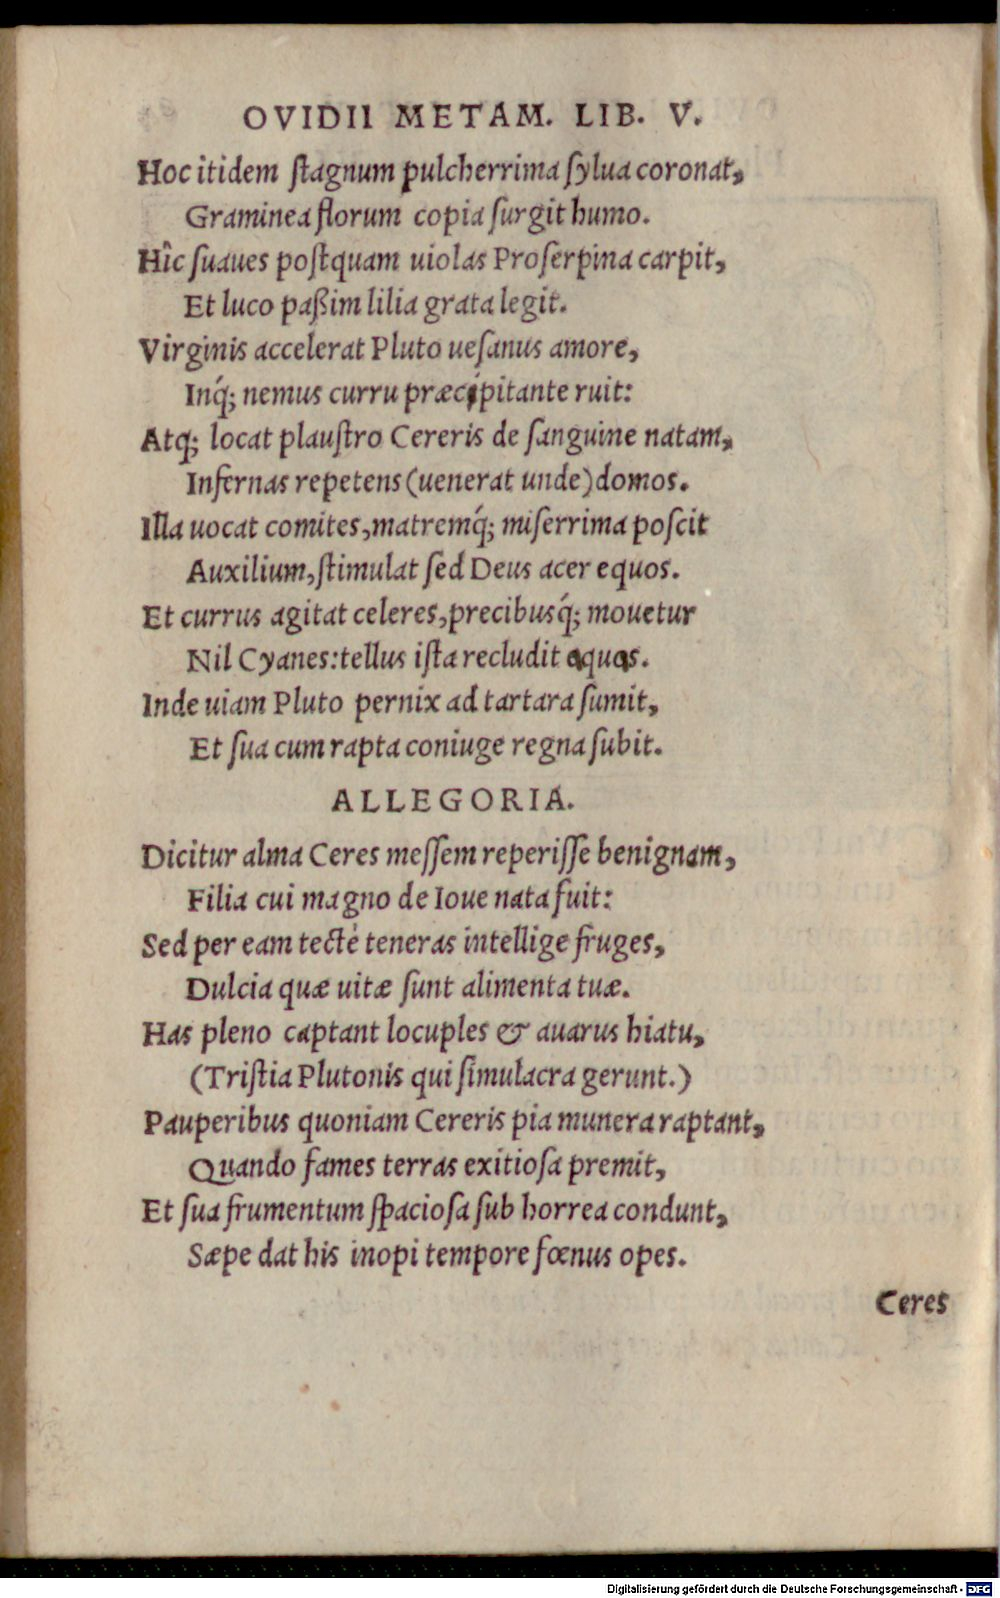 OVIDII METAM. LIB. V.
Hoc itidem ſtagnum pulcherrima ſylua coronat,
Graminea florum copia ſurgit humo.
Hîc ſuaues poſtquam uiolas Proſerpina carpit,
Et luco paßim lilia grata legit.
Virginis accelerat Pluto ueſanus amore,
Inq́; nemus curru præcipitante ruit:
Atq; locat plauſtro Cereris de ſanguine natam,
Infernas repetens (uenerat unde) domos.
Illa uocat comites, matremq́; miſerrima poſcit
Auxilium, ſtimulat ſed Deus acer equos.
Et currus agitat celeres, precibusq́; mouetur
Nil Cyanes: tellus iſta recludit aquas.
Inde uiam Pluto pernix ad tartara ſumit,
Et ſua cum rapta coniuge regna ſubit.
ALLEGORIA.
Dicitur alma Ceres meſſem reperiſſe benignam,
Filia cui magno de Ioue nata fuit:
Sed per eam tectè teneras intellige fruges,
Dulcia quæ uitæ ſunt alimenta tuæ.
Has pleno captant locuples & auarus hiatu,
(Triſtia Plutonis qui ſimulacra gerunt.)
Pauperibus quoniam Cereris pia munera raptant,
Quando fames terras exitioſa premit,
Et ſua frumentum ſpacioſa ſub horrea condunt,
Sæpe dat his inopi tempore fœnus opes.
Ceres
Digitalisierung gefördert durch die Deutsche Forschungsgemeinschaft - DFG